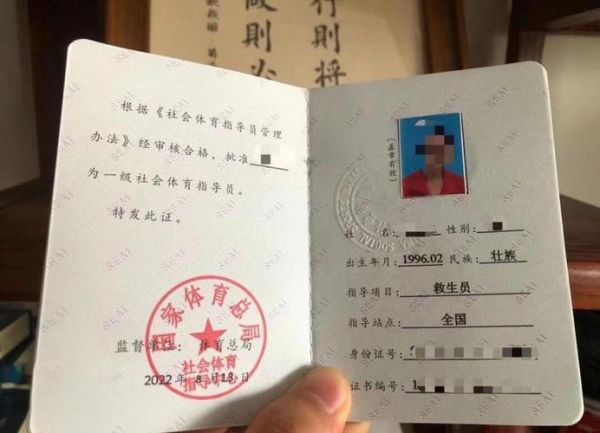 行則將
則必
根据《社会体育指导员管理
办法》经审核合格，批准
为一级社会体育指导员。
特发此证。
国家体育总局
社会体育
监督单位： 体育总局
2022年8月13日
（盖章有效）
姓 名： 性别：
出生年月：1996.02 民族：壮族
指导项目：救生员
指导站点：全国
身份证号：
证书编号：1
SEAI